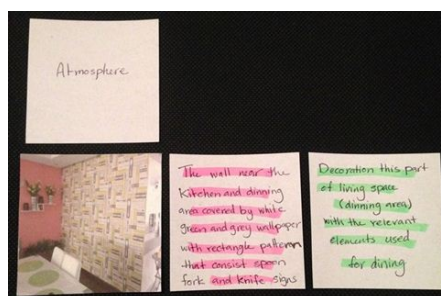 Atmosphere
The wall near the
Kitchen and dinning
area covered by white
green and grey wallpaper
with rectangle pattern
that consist spoon
fork and knife signs
Decoration this part
of living space
(dinning area)
with the relevant
elements used
for dining